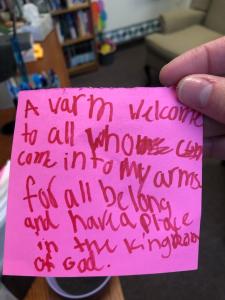 A varm Welcome
to all who
come into my arms
for all belong
and have a place
in the kingdom
of God.